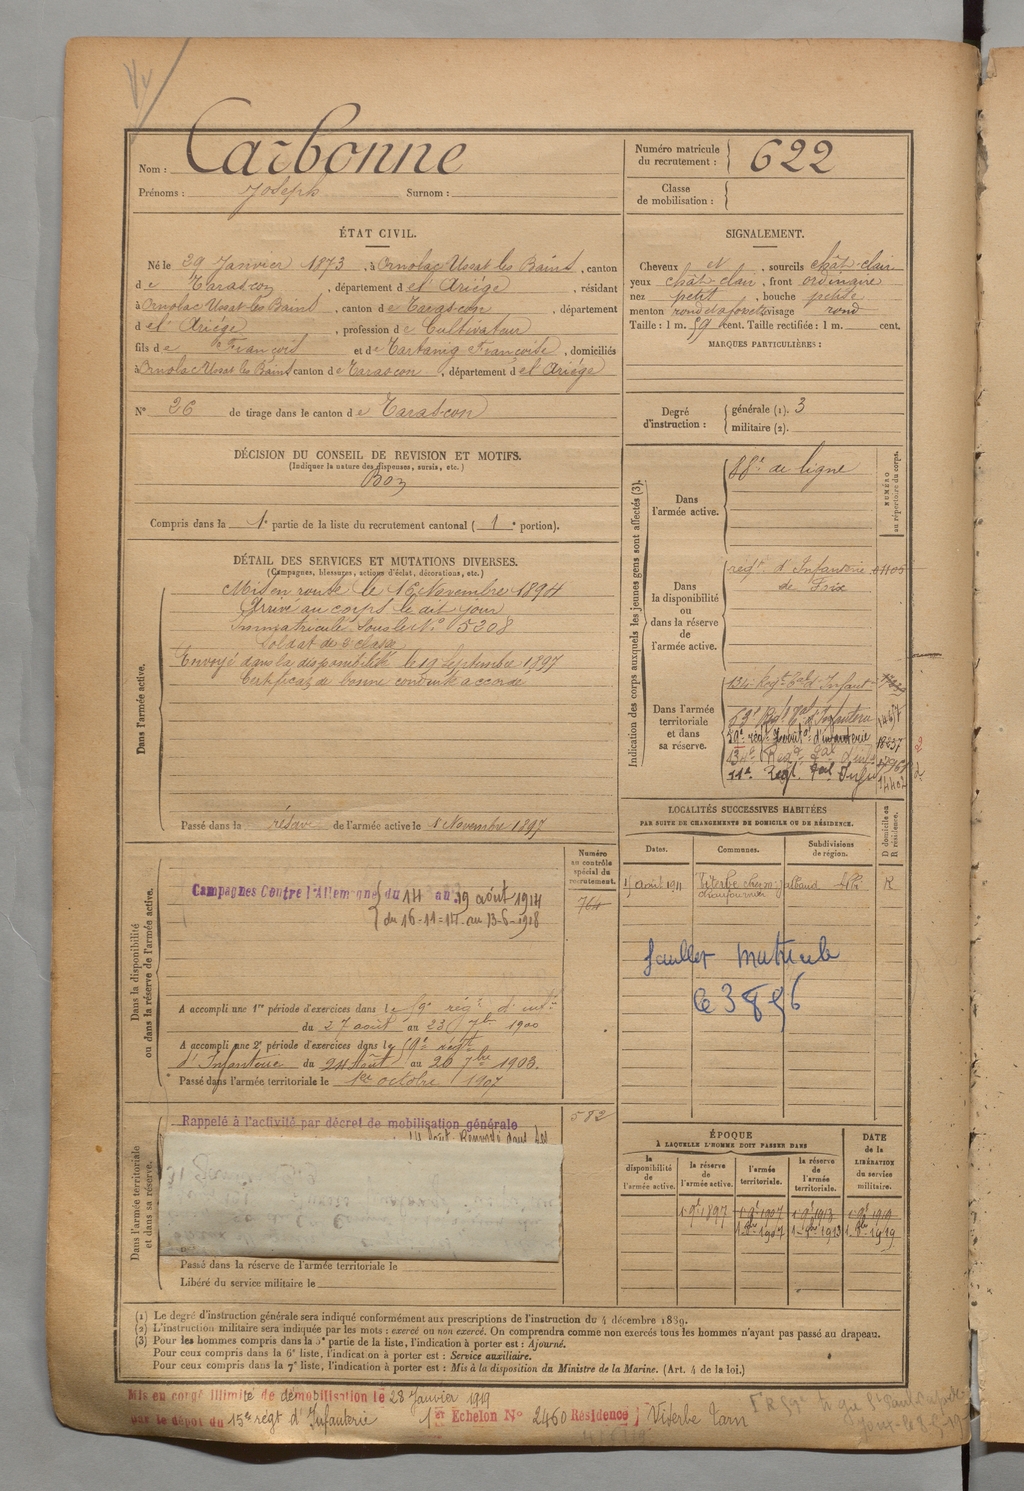 Nom : Carbonne
Prénoms : Joseph Surnom :
Numéro matricule du recrutement : 622
Classe de mobilisation :
ÉTAT CIVIL.
Né le 29 Janvier 1873, à Ornolac Ussat les Bains, canton
de Tarascon, département de l'Ariége, résidant
à Ornolac Ussat-les-Bains, canton de Tarascon, département
de l'Ariége, profession de Cultivateur
fils de François et de Françoise, domiciliés
à Ornolac Ussat les Bains canton de Tarascon, département de l'Ariége
N° 26 de tirage dans le canton de Tarascon
SIGNALEMENT.
Cheveux et, sourcils chât-clair
yeux chât-clair, front ordinaire
nez petit, bouche petite
menton rond visage rond
Taille : 1 m. 59 cent. Taille rectifiée : 1 m. cent.
MARQUES PARTICULIÈRES :
Degré d'instruction : générale (1). 3
militaire (2).
DÉCISION DU CONSEIL DE REVISION ET MOTIFS.
(Indiquer la nature des dispenses, sursis, etc.)
Bon
Compris dans la 1e partie de la liste du recrutement cantonal (1e portion).
DÉTAIL DES SERVICES ET MUTATIONS DIVERSES.
(Campagnes, blessures, actions d'éclat, décorations, etc.)
Dans l'armée active.
Mis en route le 16 Novembre 1894
Arrivé au corps le dit jour
Immatriculé sous le N° 5308
Soldat de 2e classe
Envoyé dans la disponibilité le 19 Septembre 1897
Certificat de bonne conduite accordé
Passé dans la réserve de l'armée active le 1 Novembre 1897
Indication des corps auxquels les jeunes gens sont affectés (3).
NUMÉRO au répertoire du corps.
Dans l'armée active.
88e de ligne
Dans la disponibilité ou dans la réserve de l'armée active.
régt d'Infanterie
de Foix
Dans l'armée territoriale et dans sa réserve.
134e Régt Tal d'Infant
59e Régt Tal d'Infanterie
d'infanterie
LOCALITÉS SUCCESSIVES HABITÉES
PAR SUITE DE CHANGEMENTS DE DOMICILE OU DE RÉSIDENCE.
Dates. Communes. Subdivisions de région. D domicile ou R résidence.
août 1911 Viterbe Albi R
feuillet matricule
Dans la disponibilité ou dans la réserve de l'armée active.
Numéro au contrôle spécial du recrutement.
764
Campagnes Contre l'Allemagne du 14 au 19 août 1914
du 16-11-14 au 13-6-1918
A accompli une 1re période d'exercices dans le 59e régt d'infie
du 27 août au 23 7bre 1900
A accompli une 2e période d'exercices dans le 59e régt
d'Infanterie du 24 Août au 20 7bre 1903.
Passé dans l'armée territoriale le 1er octobre 1907
Dans l'armée territoriale et dans sa réserve.
582
Rappelé à l'activité par décret de mobilisation générale
Passé dans la réserve de l'armée territoriale le
Libéré du service militaire le
ÉPOQUE
A LAQUELLE L'HOMME DOIT PASSER DANS
DATE de la LIBÉRATION du service militaire.
la disponibilité de l'armée active. la réserve de l'armée active. l'armée territoriale. la réserve de l'armée territoriale.
1 9e 1897 1 9e 1907 1 9e 1913 1 9e 1919
(1) Le degré d'instruction générale sera indiqué conformément aux prescriptions de l'instruction du 4 décembre 1889.
(2) L'instruction militaire sera indiquée par les mots : exercé ou non exercé. On comprendra comme non exercés tous les hommes n'ayant pas passé au drapeau.
(3) Pour les hommes compris dans la 5e partie de la liste, l'indication à porter est : Ajourné.
Pour ceux compris dans la 6e liste, l'indication à porter est : Service auxiliaire.
Pour ceux compris dans la 7e liste, l'indication à porter est : Mis à la disposition du Ministre de la Marine. (Art. 4 de la loi.)
Mis en congé illimité de démobilisation le 28 Janvier 1919
par le dépôt du 15e régt d'Infanterie 1er Echelon N° 2460 Résidence Viterbe Tarn